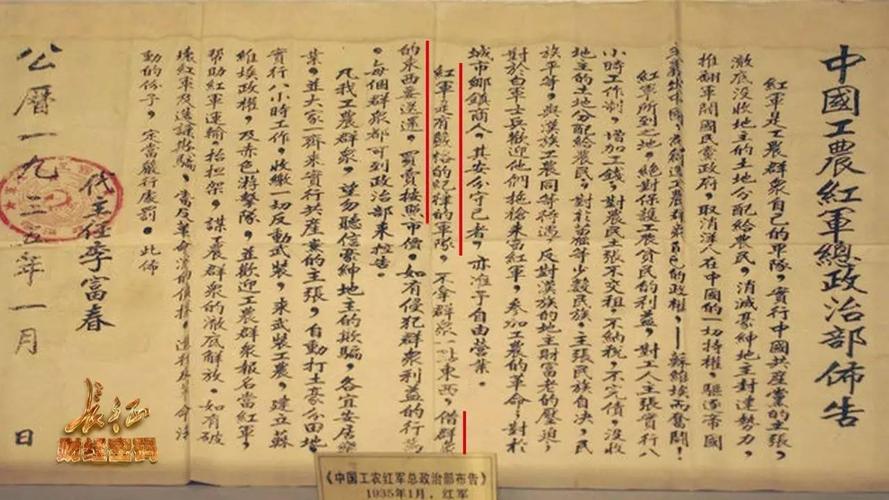 中國工農紅軍總政治部佈告
紅軍是工農群眾自己的軍隊，實行中國共產黨的主張，
澈底沒收地主的土地分配給農民，消滅豪紳地主封建勢力，
推翻軍閥國民黨政府，取消洋人在中國的一切特權，驅逐帝國
主義出中國，為締造工農群眾自己的政權——蘇維埃而奮鬥！
紅軍所到之地，絕對保護工農貧民的利益，對工人主張實行八
小時工作制，增加工錢，對農民主張不交租，不納稅，不完債，沒收
地主的土地分配給農民，對於苗等少數民族，主張民族自決，民
族平等，與漢族工農同等待遇，反對漢族的地主財富老的壓迫，
對於白軍士兵歡迎他們拖槍來當紅軍，參加工農的革命；對於
城市鄉鎮商人，其安分守己者，亦准予自由營業。
紅軍是有嚴格的紀律的軍隊，不拿群眾一點東西，借群眾
的東西要送還，買賣按照市價。如有侵犯群眾利益的行為
，每個群眾都可到政治部來控告。
凡我工農群眾，望勿聽信豪紳地主的欺騙，各宜安居樂
業，並大家一齊來實行共產黨的主張，自動打土豪分田地，
實行八小時工作，收繳一切反動武裝，來武裝工農，建立蘇
維埃政權，及赤色游擊隊，並歡迎工農群眾報名當紅軍，
幫助紅軍運輸，抬担架，謀工農群眾的澈底解放。如有破
壞紅軍及造謠欺騙，當反革命派的偵探，進行反革命活
動的份子，定當嚴行處罰。此佈
代主任李富春
公曆一九三五年一月 日
长江
《中国工农红军总政治部布告》
1935年1月，红军